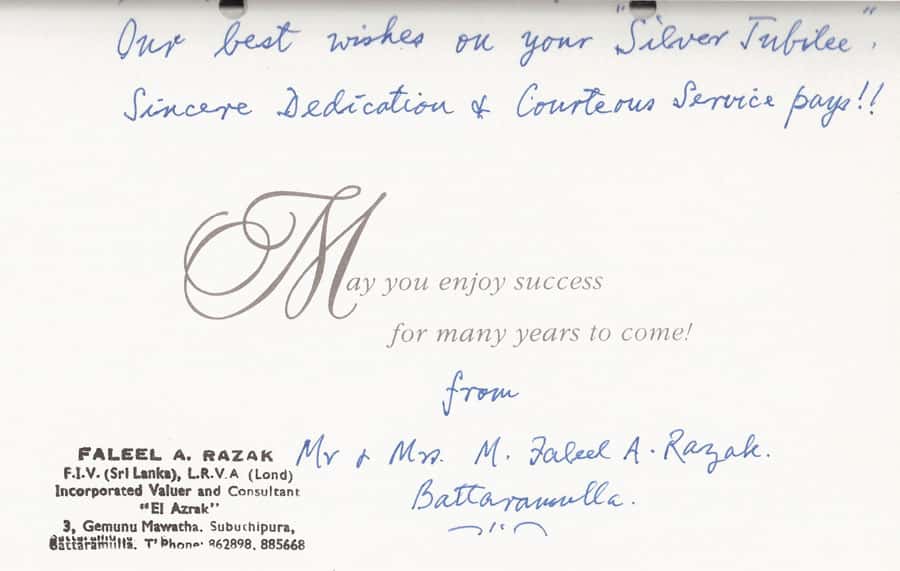 Our best wishes on your "Silver Jubilee".
Sincere Dedication & Courteous Service pays!!
May you enjoy success
for many years to come!
from
Mr & Mrs. M. Faleel A. Razak.
Battaramulla.
FALEEL A. RAZAK
F.I.V. (Sri Lanka), L.R.V.A (Lond)
Incorporated Valuer and Consultant
"El Azrak"
3, Gemunu Mawatha. Subuchipura,
Battaramulla. T'Phone: 862898, 885668